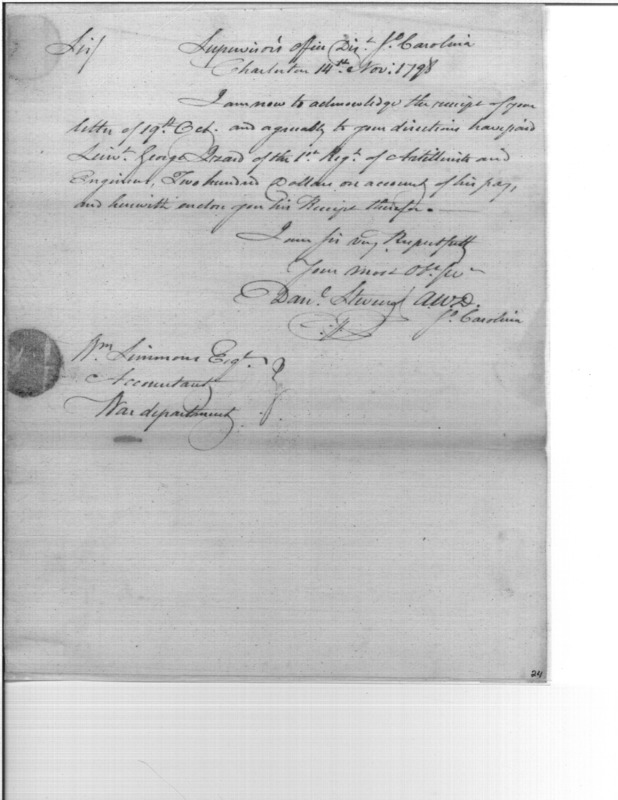 Sir/ Supervisor's office Dist. So. Carolina
Charleston 14th Nov: 1798
I am now to acknowledge the receipt of your
letter of 19th Oct. and agreeably to your directions have paid
Leiut. George Izard of the 1st Regt. of Artillerists and
Engineers, Two hundred Dollars on account of his pay,
and herewith enclose you his Receipt therefor.
I am Sir very Respectfully
Your most Obt. Ser
Danl. Stevens A.W.D.
So. Carolina
Wm. Simmons Esqr.
Accountant
War department
24